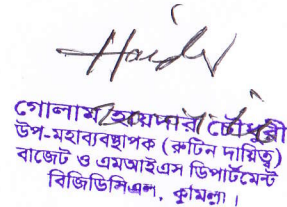 Haider
গোলাম হায়দার চৌধুরী
উপ-মহাব্যবস্থাপক (রুটিন দায়িত্ব)
বাজেট ও এমআইএস ডিপার্টমেন্ট
বিজিডিসিএল, কুমিল্লা।